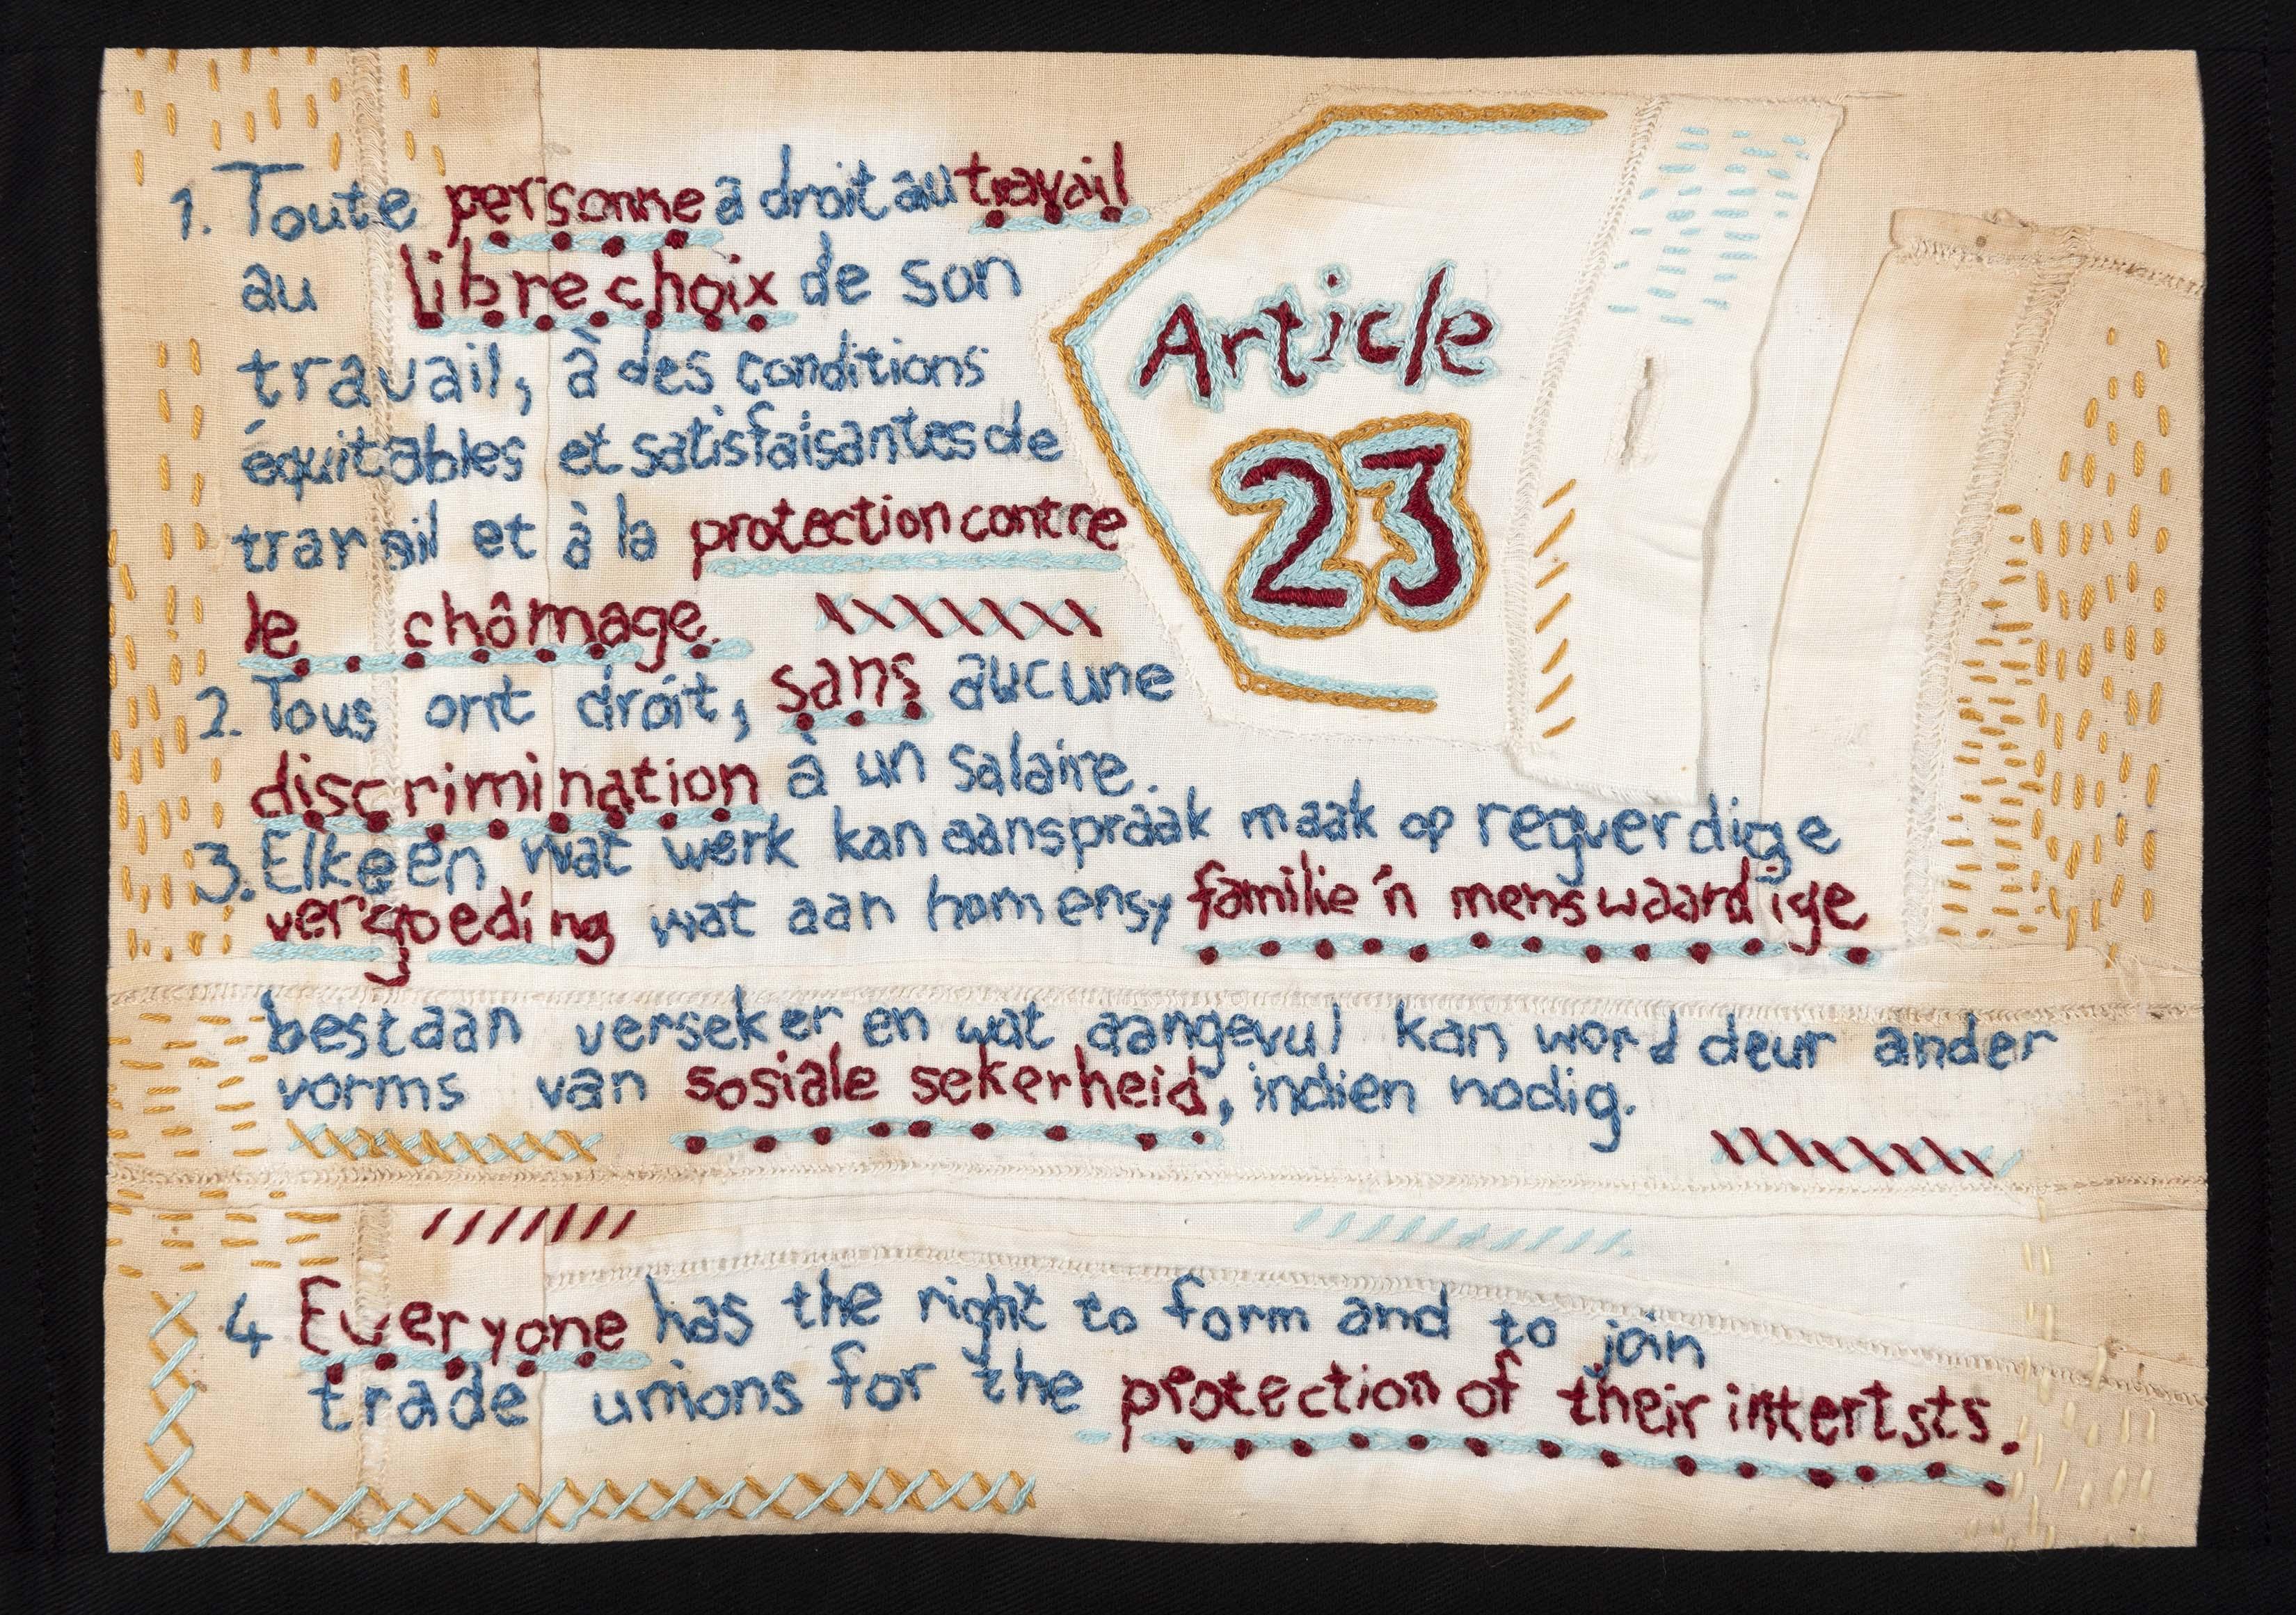 Article
23
1. Toute personne a droit au travail
au libre choix de son
travail, à des conditions
équitables et satisfaisantes de
travail et à la protection contre
le chômage.
2. Tous ont droit, sans aucune
discrimination à un salaire.
3. Elkeen wat werk kan aanspraak maak op regverdige
vergoeding wat aan hom ensy familie 'n menswaardige
bestaan verseker en wat aangevul kan word deur ander
vorms van sosiale sekerheid, indien nodig.
4 Everyone has the right to form and to join
trade unions for the protection of their intertsts.